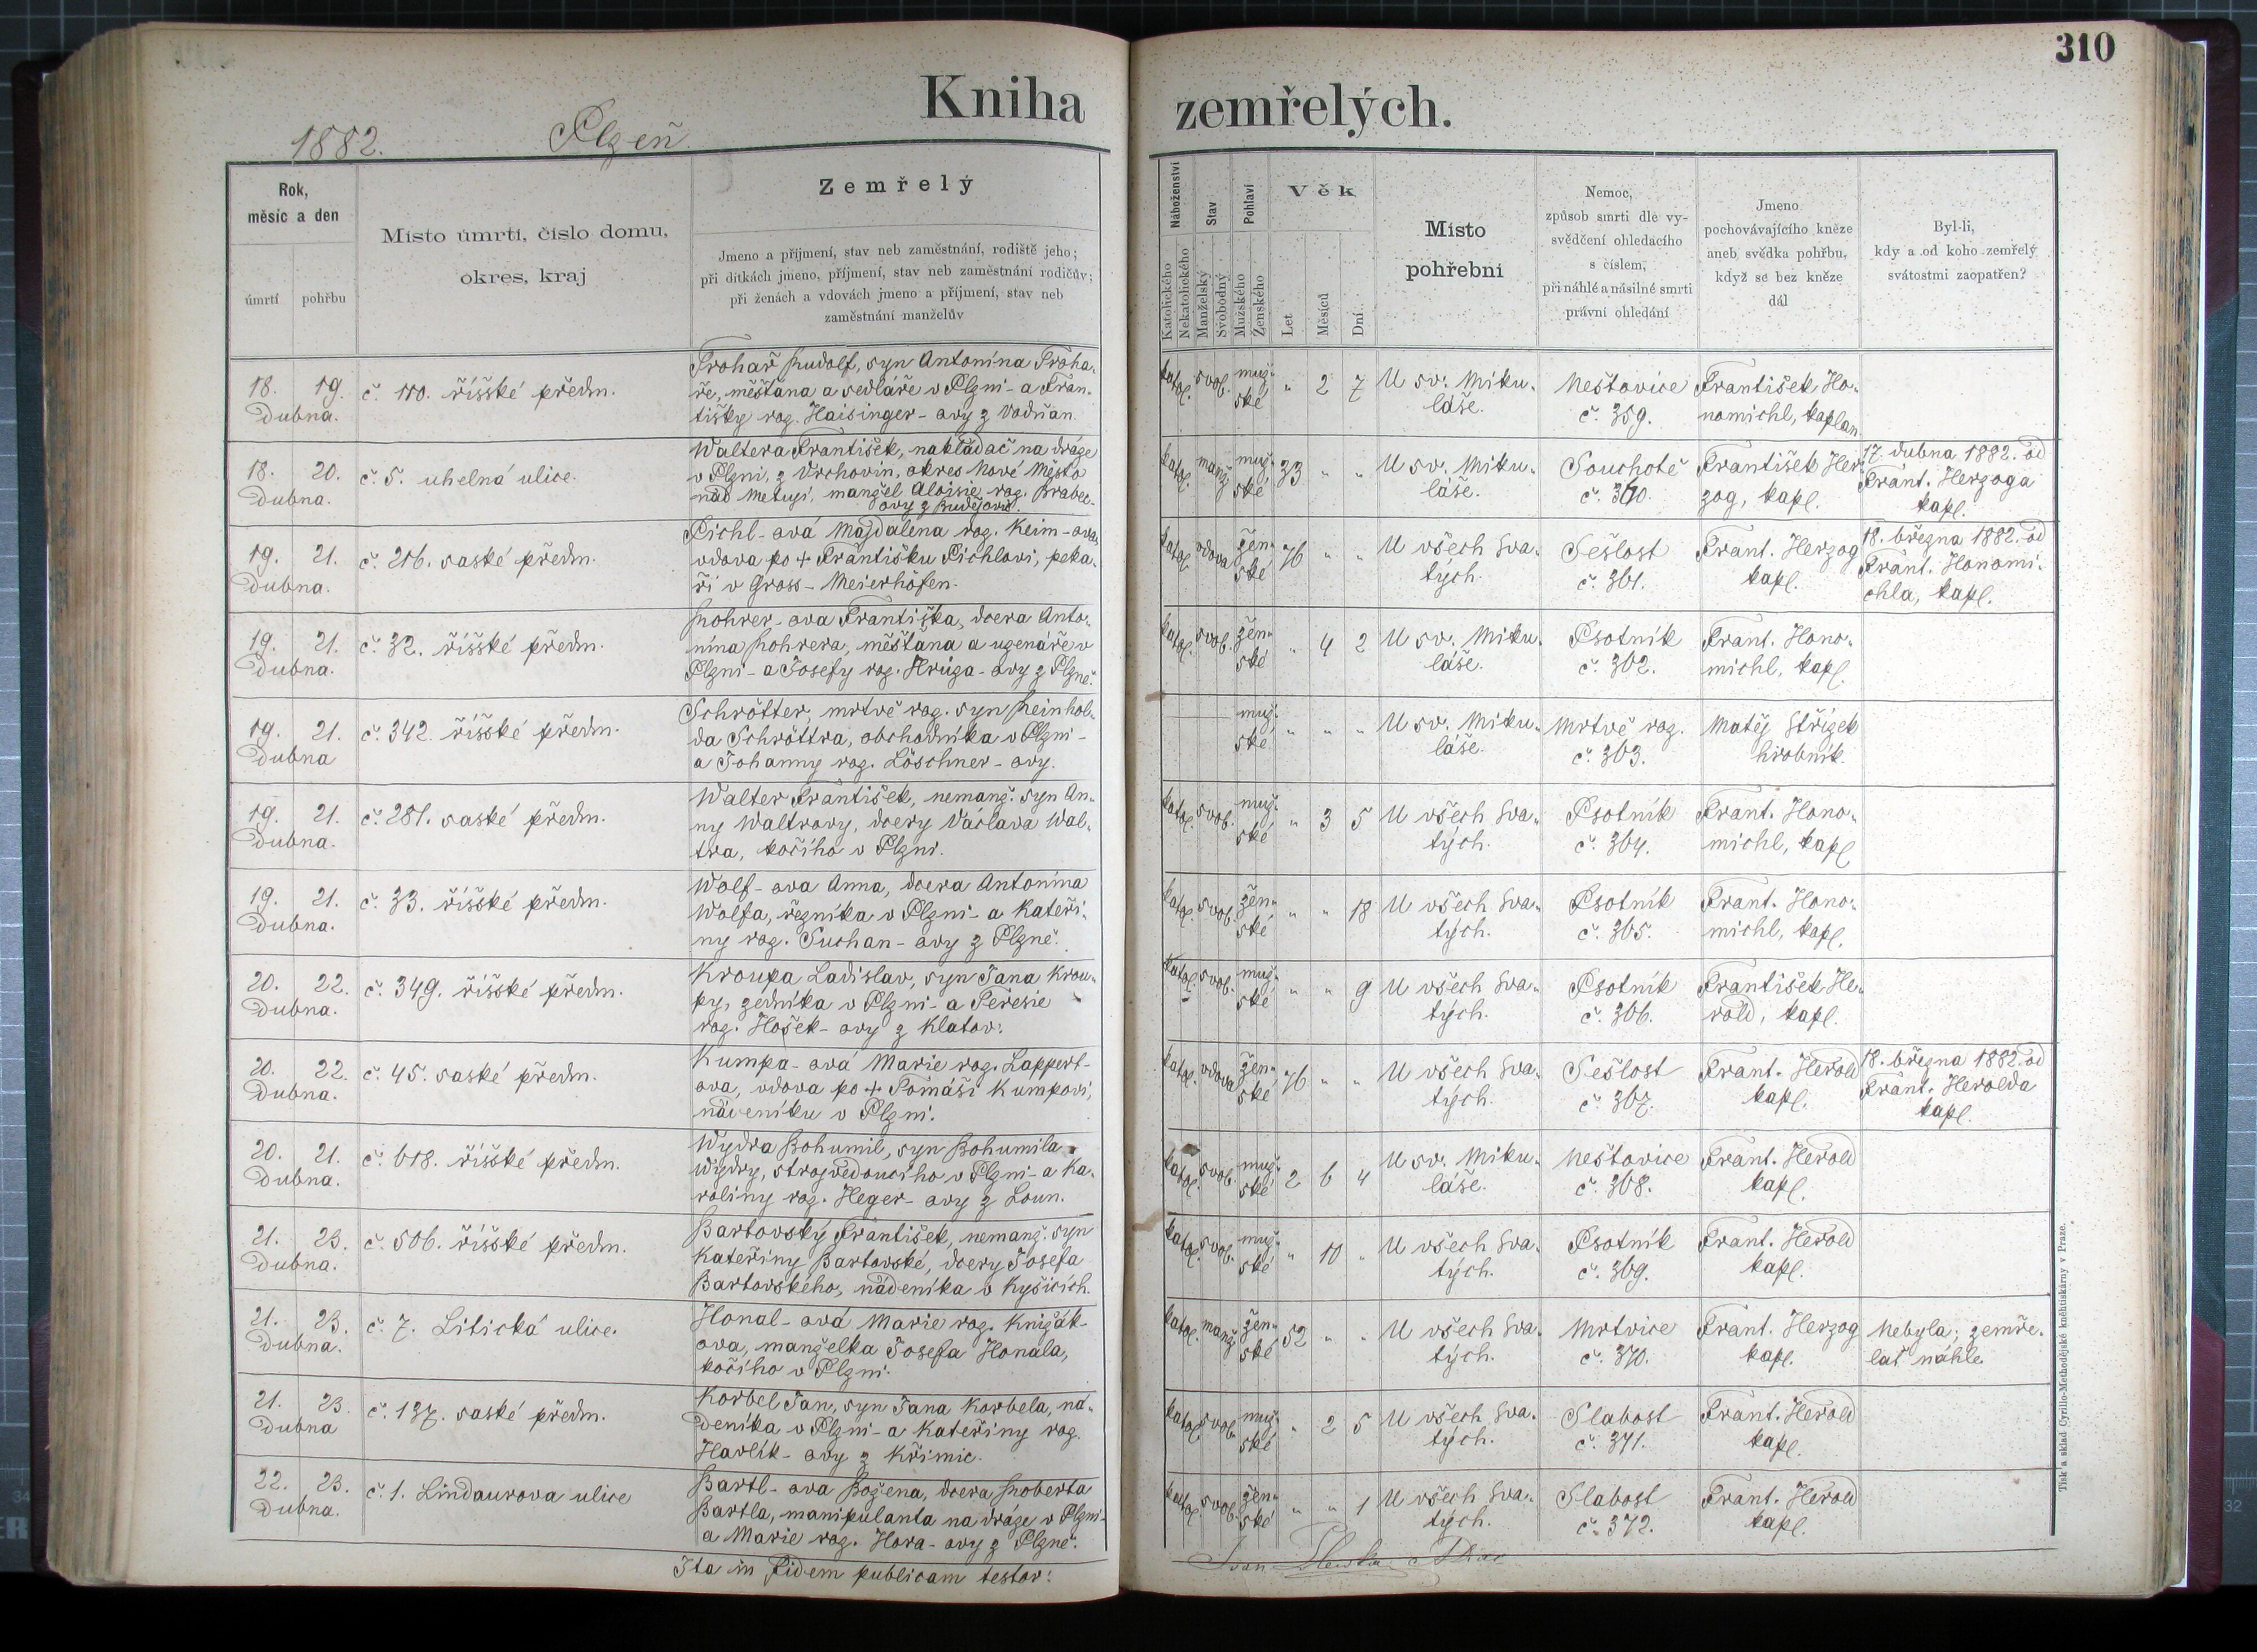 310
Kniha zemřelých.
1882. Plzeň
Rok,
měsíc a den
úmrtí
pohřbu
Místo úmrtí, číslo domu,
okres, kraj
Zemřelý
Jmeno a příjmení, stav neb zaměstnání, rodiště jeho;
při dítkách jmeno, příjmení, stav neb zaměstnání rodičův;
při ženách a vdovách jmeno a příjmení, stav neb
zaměstnání manželův
Náboženství
Katolického
Nekatolického
Stav
Manželský
Svobodný
Pohlaví
Mužského
Ženského
Věk
Let
Měsíců
Dní
Místo
pohřební
Nemoc,
způsob smrti dle vy-
svědčení ohledacího
s číslem,
při náhlé a násilné smrti
právní ohledání
Jmeno
pochovávajícího kněze
aneb svědka pohřbu,
když se bez kněze
dál
Byl-li,
kdy a od koho zemřelý
svátostmi zaopatřen?
18. 19.
Dubna.
č. 110. říšské předm.
Trohař Rudolf, syn Antonína Troha-
ře, měšťana a sedláře v Plzni - a Fran-
tišky roz. Haisinger-ovy z Vodňan.
katol. svob. muž-
ské " 2 7
U sv. Miku-
láše.
Neštovice
č. 359.
František Ho-
nomichl, kaplan
18. 20.
Dubna.
č. 5. uhelná ulice.
Waltera František, nakládač na dráze
v Plzni, z Vrchovin, okres Nové Město
nad Metují, manžel Aloisie roz. Brabec-
ovy z Budějovic.
katol. manž. muž-
ské 33 " "
U sv. Miku-
láše.
Souchotě
č. 360.
František Her-
zog, kapl.
17. dubna 1882. od
Frant. Herzoga
kapl.
19. 21.
Dubna.
č. 216. saské předm.
Pichl-ová Majdalena roz. Keim-ova,
vdova po + Františku Pichlovi, peka-
ři v Gross-Meierhöfen.
katol. vdova žen-
ské 76 " "
U všech Sva-
tých.
Sešlost
č. 361.
Frant. Herzog
kapl.
18. března 1882. od
Frant. Honomi-
chla, kapl.
19. 21.
Dubna.
č. 32. říšské předm.
Rohrer-ova Františka, dcera Anto-
nína Rohrera, měšťana a uzenáře v
Plzni - a Josefy roz. Hrůza-ovy z Plzně.
katol. svob. žen-
ské " 4 2
U sv. Miku-
láše.
Psotník
č. 362.
Frant. Hono-
michl, kapl.
19. 21.
Dubna
č. 342. říšské předm.
Schrötter, mrtvě roz. syn Reinhol-
da Schröttra, obchodníka v Plzni -
a Johanny roz. Löschner-ovy.
muž-
ské " " "
U sv. Miku-
láše.
Mrtvě roz.
č. 363.
Matěj Střízek
hrobník.
19. 21.
Dubna.
č. 281. saské předm.
Walter František, nemanž. syn An-
ny Waltrovy, dcery Václava Wal-
tra, kočího v Plzni.
katol. svob. muž-
ské " 3 5
U všech Sva-
tých.
Psotník
č. 364.
Frant. Hono-
michl, kapl
19. 21.
Dubna.
č. 33. říšské předm.
Wolf-ova Anna, dcera Antonína
Wolfa, řezníka v Plzni - a Kateři-
ny roz. Suchan-ovy z Plzně.
katol. svob. žen-
ské " " 18
U všech Sva-
tých.
Psotník
č. 365.
Frant. Hono-
michl, kapl.
20. 22.
Dubna.
č. 349. říšské předm.
Kroupa Ladislav, syn Jana Krou-
py, zedníka v Plzni - a Teresie
roz. Hošek-ovy z Klatov.
katol. svob. muž-
ské " " 9
U všech Sva-
tých.
Psotník
č. 366.
František He-
rold, kapl.
20. 22.
Dubna.
č. 45. saské předm.
Kumpa-ová Marie roz. Lappert-
ova, vdova po + Tomáši Kumpovi,
nádeníku v Plzni.
katol. vdova žen-
ské 76 " "
U všech Sva-
tých.
Sešlost
č. 367.
Frant. Herold
kapl.
18. března 1882. od
Frant. Herolda
kapl.
20. 21.
Dubna.
č. 618. říšské předm.
Wydra Bohumil, syn Bohumila
Wydry, strojvedoucího v Plzni - a Ka-
roliny roz. Heger-ovy z Loun.
katol. svob. muž-
ské 2 6 4
U sv. Miku-
láše.
Neštovice
č. 368.
Frant. Herold
kapl.
21. 23.
Dubna.
č. 506. říšské předm.
Bartovský František, nemanž. syn
Kateřiny Bartovské, dcery Josefa
Bartovského, nádeníka v Kyšicích.
katol. svob. muž-
ské " 10 "
U všech Sva-
tých.
Psotník
č. 369.
Frant. Herold
kapl.
21. 23.
Dubna.
č. 7. Litická ulice.
Honal-ová Marie roz. Knižák-
ova, manželka Josefa Honala,
kočího v Plzni.
katol. manž. žen-
ské 52 " "
U všech Sva-
tých.
Mrtvice
č. 370.
Frant. Herzog
kapl.
Nebyla; zemře-
lať náhle.
21. 23.
Dubna
č. 137. saské předm.
Korbel Jan, syn Jana Korbela, ná-
deníka v Plzni - a Kateřiny roz.
Havlík-ovy z Křimic.
katol. svob. muž-
ské " 2 5
U všech Sva-
tých.
Slabost
č. 371.
Frant. Herold
kapl.
22. 23.
Dubna.
č. 1. Lindaurova ulice
Bartl-ova Božena, dcera Roberta
Bartla, manipulanta na dráze v Plzni -
a Marie roz. Hora-ovy z Plzně.
katol. svob. žen-
ské " " 1
U všech Sva-
tých.
Slabost
č. 372.
Frant. Herold
kapl.
Ita in fidem publicam testor:
Tisk a sklad Cyrillo-Methodějské kněhtiskárny v Praze.